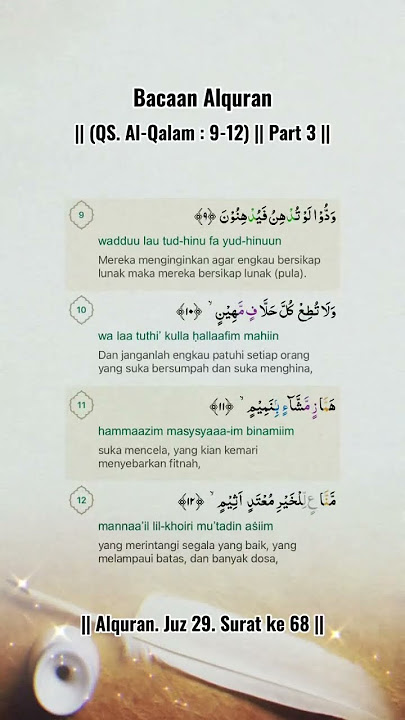 Bacaan Alquran
|| (QS. Al-Qalam : 9-12) || Part 3 ||
9
وَدُّوْا لَوْ تُدْهِنُ فَيُدْهِنُوْنَ ﴿٩﴾
wadduu lau tud-hinu fa yud-hinuun
Mereka menginginkan agar engkau bersikap
lunak maka mereka bersikap lunak (pula).
10
وَلَا تُطِعْ كُلَّ حَلَّافٍ مَّهِيْنٍ ۙ ﴿١٠﴾
wa laa tuthi' kulla ḥallaafim mahiin
Dan janganlah engkau patuhi setiap orang
yang suka bersumpah dan suka menghina,
11
هَمَّازٍ مَّشَّاۤءٍ بِنَمِيْمٍ ۙ ﴿١١﴾
hammaazim masysyaaa-im binamiim
suka mencela, yang kian kemari
menyebarkan fitnah,
12
مَّنَّاعٍ لِّلْخَيْرِ مُعْتَدٍ اَثِيْمٍ ۙ ﴿١٢﴾
mannaa'il lil-khoiri mu'tadin aṡiim
yang merintangi segala yang baik, yang
melampaui batas, dan banyak dosa,
|| Alquran. Juz 29. Surat ke 68 ||